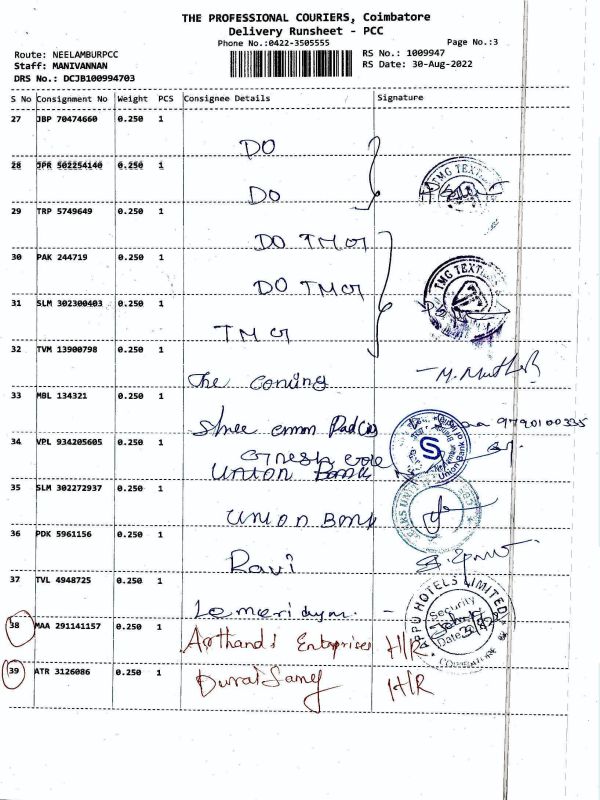 THE PROFESSIONAL COURIERS, Coimbatore
Delivery Runsheet - PCC
Phone No.:0422-3505555
Page No.:3
Route: NEELAMBURPCC
RS No.: 1009947
Staff: MANIVANNAN
RS Date: 30-Aug-2022
DRS No.: DCJB100994703
S No Consignment No Weight PCS Consignee Details Signature
27 JBP 70474660 0.250 1
DO
28 JPR 502254140 0.250 1
DO
29 TRP 5749649 0.250 1
DO TMG
30 PAK 244719 0.250 1
DO TMG
31 SLM 302300403 0.250 1
TMG
32 TVM 13900798 0.250 1
The
33 MBL 134321 0.250 1
Shree
9790100335
34 VPL 934205605 0.250 1
UNION BANK
35 SLM 302272937 0.250 1
UNION BANK
36 PDK 5961156 0.250 1
Ravi
37 TVL 4948725 0.250 1
APPU HOTELS LIMITED
Security
Date
38 MAA 291141157 0.250 1
Enterprises H/R.
39 ATR 3126086 0.250 1
H/R